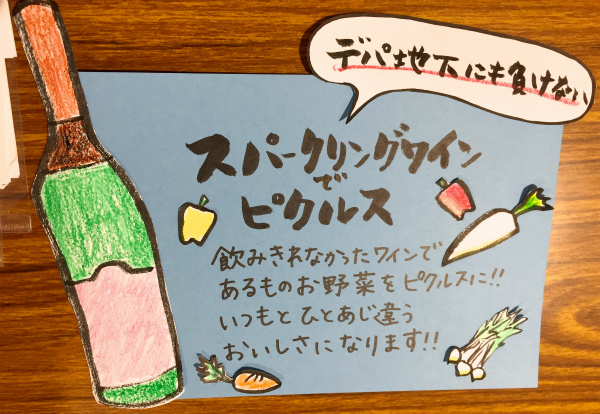 デパ地下にも負けない
スパークリングワイン
で
ピクルス
飲みきれなかったワインで
あるものお野菜をピクルスに!!
いつもとひとあじ違う
おいしさになります!!